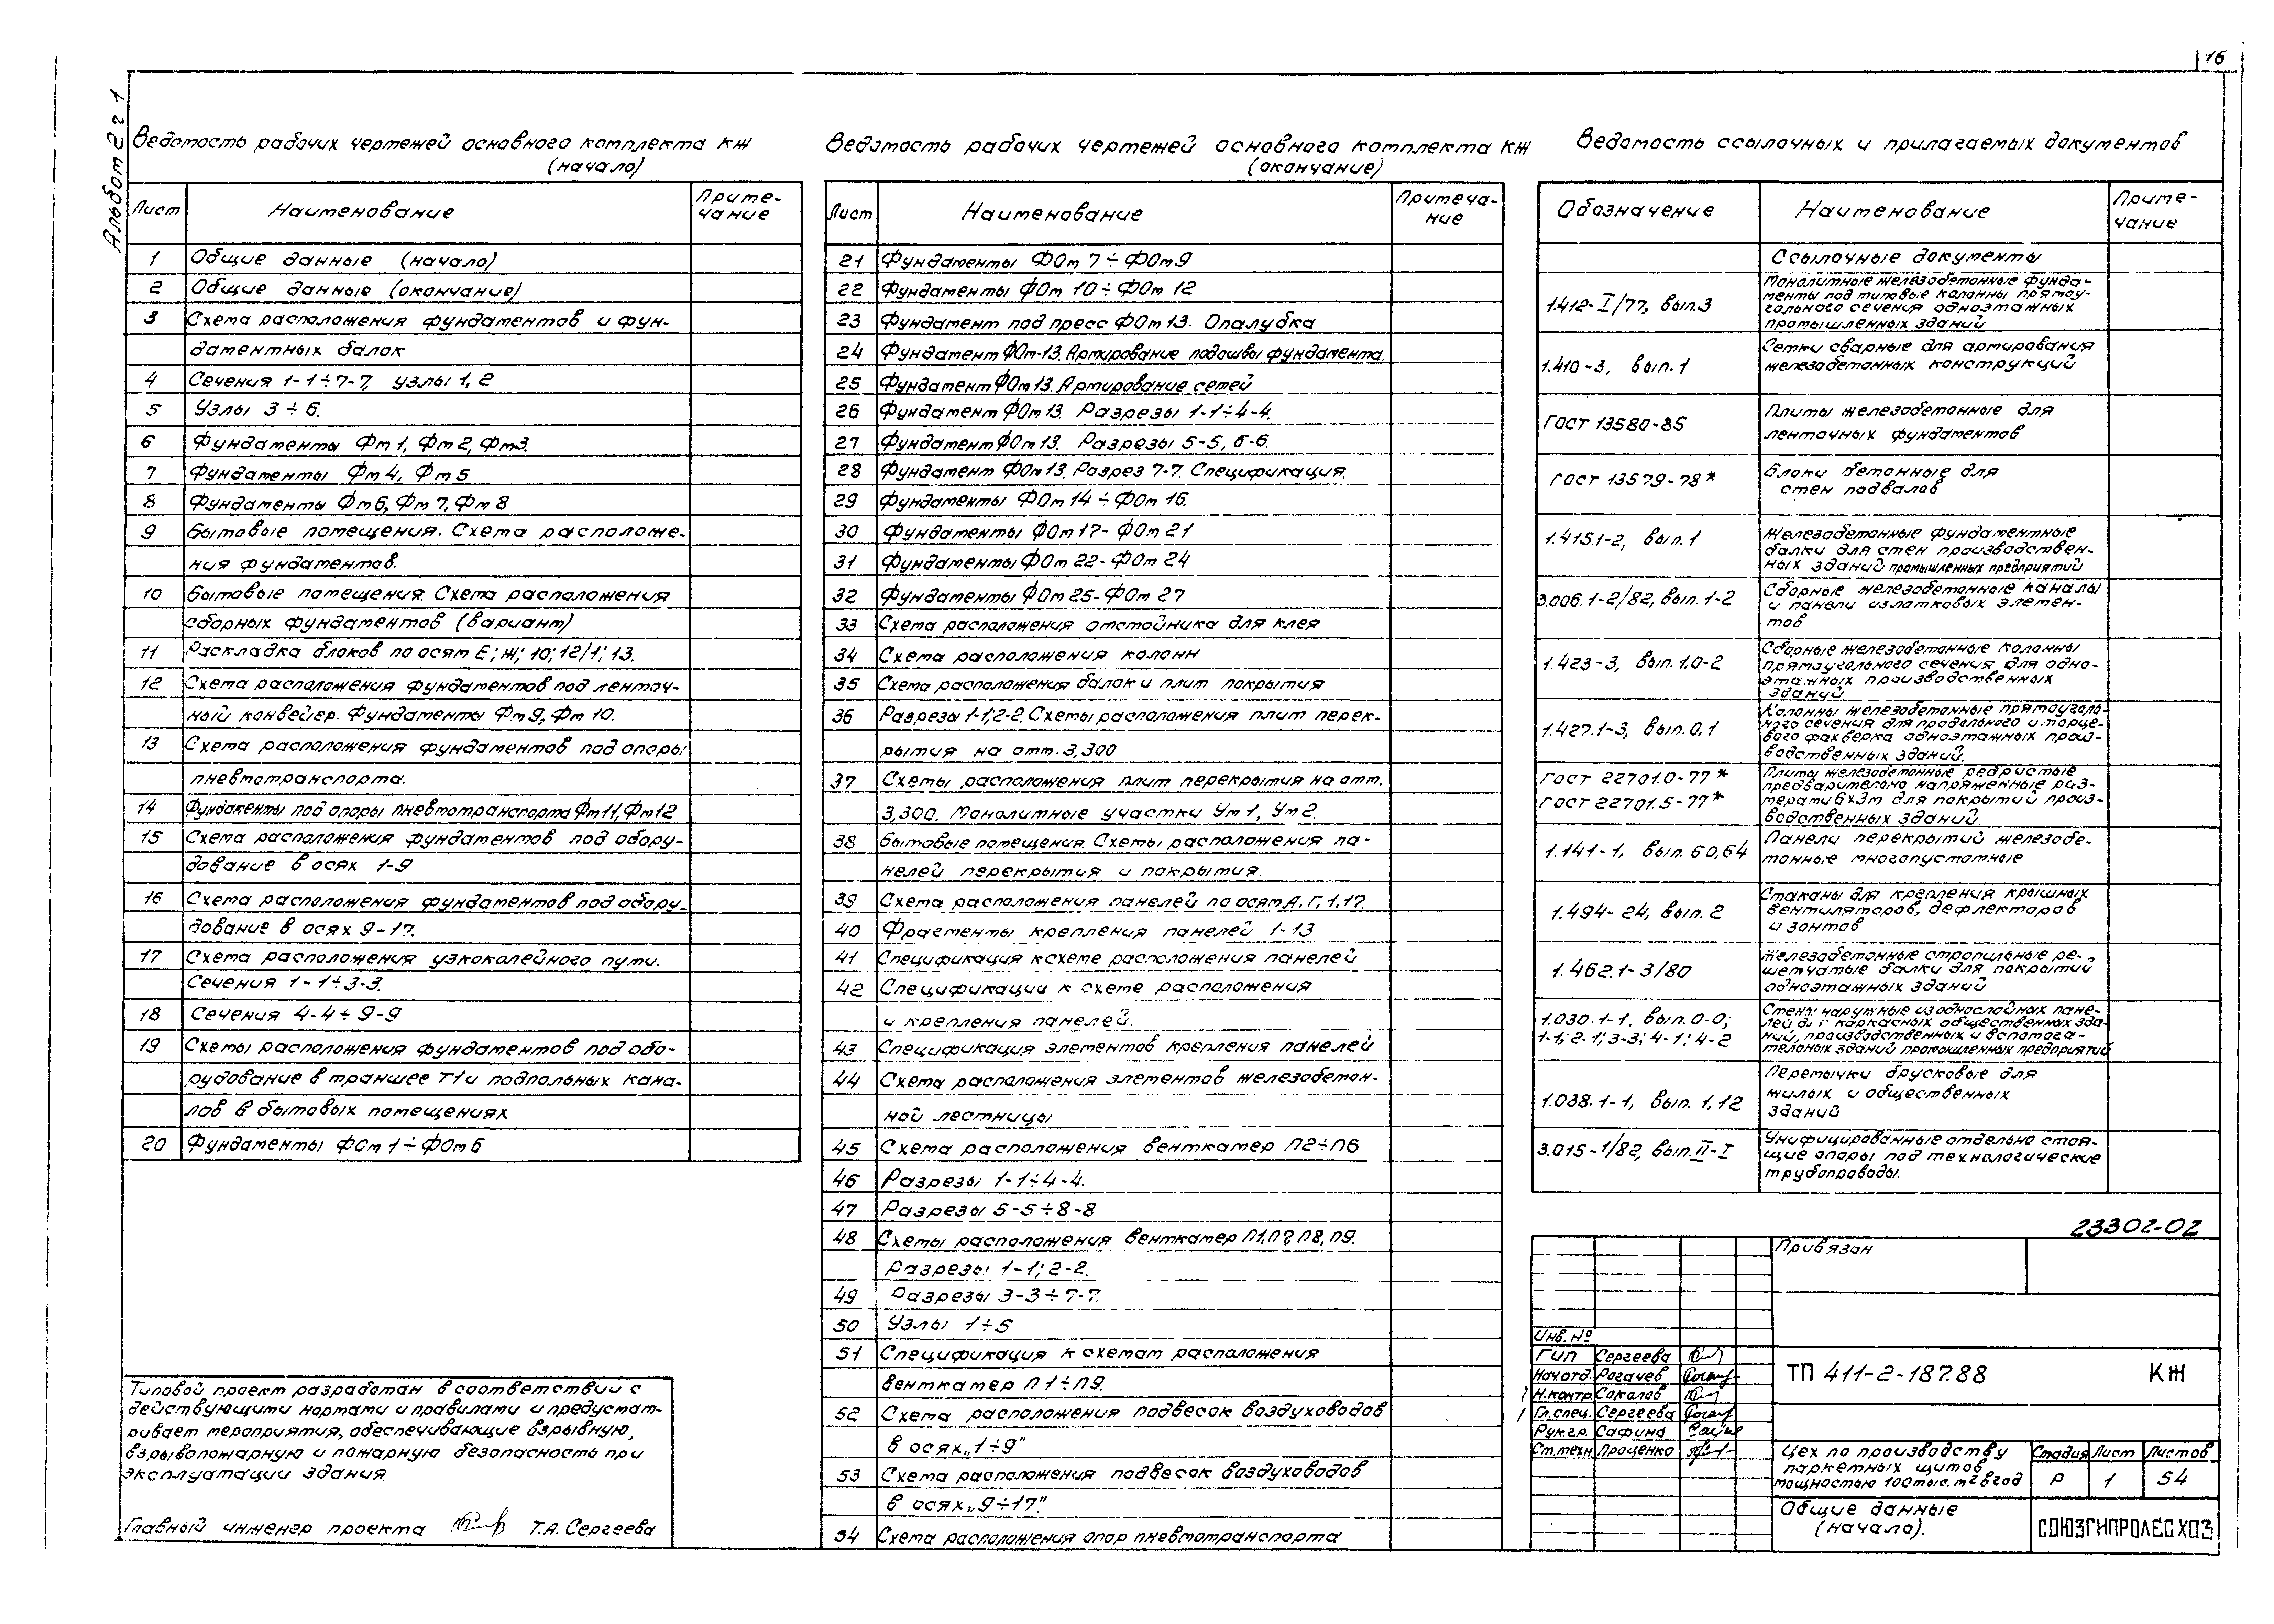 16
Альбом 2 г 1
Ведомость рабочих чертежей основного комплекта КЖ
(начало)
Лист Наименование Приме-
чание
1 Общие данные (начало)
2 Общие данные (окончание)
3 Схема расположения фундаментов и фун-
даментных балок
4 Сечения 1-1÷7-7, узлы 1, 2
5 Узлы 3÷6.
6 Фундаменты Фм1, Фм2, Фм3.
7 Фундаменты Фм4, Фм5
8 Фундаменты Фм6, Фм7, Фм8
9 Бытовые помещения. Схема расположе-
ния фундаментов.
10 Бытовые помещения. Схема расположения
сборных фундаментов (вариант)
11 Раскладка блоков по осям Е; Ж; 10; 12/1; 13.
12 Схема расположения фундаментов под ленточ-
ный конвейер. Фундаменты Фм9, Фм 10.
13 Схема расположения фундаментов под опоры
пневмотранспорта.
14 Фундаменты под опоры пневмотранспорта Фм11, Фм12
15 Схема расположения фундаментов под обору-
дование в осях 1-9
16 Схема расположения фундаментов под обору-
дование в осях 9-17.
17 Схема расположения узкоколейного пути.
Сечения 1-1÷3-3.
18 Сечения 4-4÷9-9
19 Схемы расположения фундаментов под обо-
рудование в траншее Т1 и подпольных кана-
лов в бытовых помещениях
20 Фундаменты ФОм1÷ФОм6
Типовой проект разработан в соответствии с
действующими нормами и правилами и предусмат-
ривает мероприятия, обеспечивающие взрывную,
взрывопожарную и пожарную безопасность при
эксплуатации здания.
Главный инженер проекта Т.А. Сергеева
Ведомость рабочих чертежей основного комплекта КЖ
(окончание)
Лист Наименование Примеча-
ние
21 Фундаменты ФОм 7÷ФОм9
22 Фундаменты ФОм 10÷ФОм 12
23 Фундамент под пресс ФОм 13. Опалубка
24 Фундамент ФОм-13. Армирование подошвы фундамента.
25 Фундамент ФОм13. Армирование сетей
26 Фундамент ФОм13. Разрезы 1-1÷4-4.
27 Фундамент ФОм13. Разрезы 5-5, 6-6.
28 Фундамент ФОм13. Разрез 7-7. Спецификация.
29 Фундаменты ФОм 14÷ФОм 16.
30 Фундаменты ФОм17-ФОм 21
31 Фундаменты ФОм 22-ФОм 24
32 Фундаменты ФОм 25-ФОм 27
33 Схема расположения отстойника для клея
34 Схема расположения колонн
35 Схема расположения балок и плит покрытия
36 Разрезы 1-1; 2-2. Схемы расположения плит перек-
рытия на отм. 3,300
37 Схемы расположения плит перекрытия на отм.
3,300. Монолитные участки Ум 1, Ум 2.
38 Бытовые помещения. Схемы расположения па-
нелей перекрытия и покрытия.
39 Схема расположения панелей по осям А, Г, 1, 17.
40 Фрагменты крепления панелей 1-13
41 Спецификация к схеме расположения панелей
42 Спецификации к схеме расположения
и крепления панелей.
43 Спецификация элементов крепления панелей
44 Схема расположения элементов железобетон-
ной лестницы
45 Схема расположения венткамер П2÷П6
46 Разрезы 1-1÷4-4.
47 Разрезы 5-5÷8-8
48 Схемы расположения венткамер П1, П7, П8, П9.
Разрезы 1-1; 2-2.
49 Разрезы 3-3÷7-7.
50 Узлы 1÷5
51 Спецификация к схемам расположения
венткамер П1÷П9.
52 Схема расположения подвесок воздуховодов
в осях „1÷9"
53 Схема расположения подвесок воздуховодов
в осях „9÷17"
54 Схема расположения опор пневмотранспорта
Ведомость ссылочных и прилагаемых документов
Обозначение Наименование Приме-
чание
Ссылочные документы
1.412-I/77, вып.3 Монолитные железобетонные фунда-
менты под типовые колонны прямоу-
гольного сечения одноэтажных
промышленных зданий
1.410-3, вып. 1 Сетки сварные для армирования
железобетонных конструкций
ГОСТ 13580-85 Плиты железобетонные для
ленточных фундаментов
ГОСТ 13579-78* Блоки бетонные для
стен подвалов
1.415.1-2, вып. 1 Железобетонные фундаментные
балки для стен производствен-
ных зданий промышленных предприятий
3.006.1-2/82, вып. 1-2 Сборные железобетонные каналы
и панели из лотковых элемен-
тов
1.423-3, вып. 1.0-2 Сборные железобетонные колонны
прямоугольного сечения для одно-
этажных производственных
зданий
1.427.1-3, вып. 0,1 Колонны железобетонные прямоуголь-
ного сечения для продольного и торце-
вого фахверка одноэтажных произ-
водственных зданий.
ГОСТ 22701.0-77*
ГОСТ 22701.5-77* Плиты железобетонные ребристые
предварительно напряженные раз-
мерами 6х3м для покрытий произ-
водственных зданий.
1.141-1, вып. 60,64 Панели перекрытий железобе-
тонные многопустотные
1.494-24, вып. 2 Стаканы для крепления крышных
вентиляторов, дефлекторов
и зонтов
1.462.1-3/80 Железобетонные стропильные ре-
шетчатые балки для покрытий
одноэтажных зданий
1.030.1-1, вып. 0-0;
1-1; 2-1; 3-3; 4-1; 4-2 Стены наружные из однослойных пане-
лей для каркасных общественных зда-
ний, производственных и вспомога-
тельных зданий промышленных предприятий
1.038.1-1, вып. 1,12 Перемычки брусковые для
жилых и общественных
зданий
3.015-1/82, вып. II-I Унифицированные отдельно стоя-
щие опоры под технологические
трубопроводы.
23302-02
Привязан
Инв. №
ГИП Сергеева
Нач.отд. Рогачев
Н.контр. Соколов
Гл.спец. Сергеева
Рук.гр. Сафина
Ст.техн. Проценко
ТП 411-2-187.88 КЖ
Цех по производству
паркетных щитов
мощностью 100тыс. м2 в год
Стадия Лист Листов
Р 1 54
Общие данные
(начало).
СОЮЗГИПРОЛЕСХОЗ